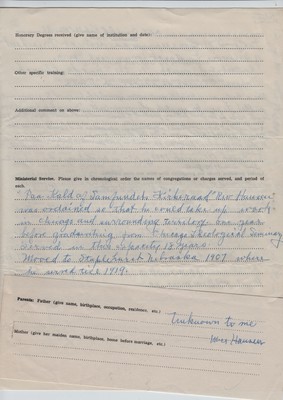 Honorary Degrees received (give name of institution and date):
Other specific training:
Additional comment on above:
Ministerial Service. Please give in chronological order the names of congregations or charges served, and period of each.
"Paa Kald af Samfundets Kirkeraad" Rev Hansen
was ordained so that he could take up work
in Chicago and surrounding territory one year
before graduating from Chicago Theological Seminary
Served in this capacity 18 years.
Moved to Staplehurst Nebraska 1907 where
he served till 1919.
Parents: Father (give name, birthplace, occupation, residence, etc.)
Unknown to me
Mother (give her maiden name, birthplace, home before marriage, etc.)